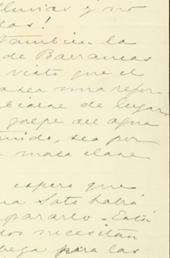 lluvias y no
as!
También la
de Barrancas
visto que el
una refor
de lugar
golpe del agua
por
mala clase
espero que
Soto habrá
pararlo - Está
necesitan
para las